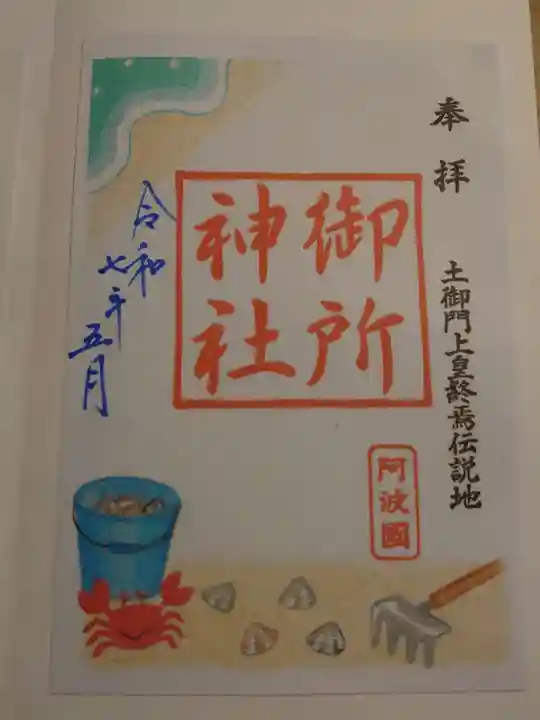 奉拝
土御門上皇終焉伝説地
御所
神社
阿波國
令和
七年
五月